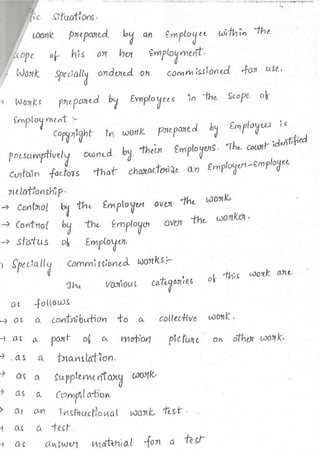 ic Situations.
work prepared by an Employee within the
scope of his or her Employment.
- Work Specially ordered or commissioned for use.
Works prepared by Employees in the Scope of
Employment :-
Copyright in work prepared by Employees is
presumptively owned by their Employers. The court identified
certain factors that characterize an Employer-Employee
relationship.
→ Control by the Employer over the work.
→ Control by the Employer over the worker.
→ status of Employer.
) Specially Commissioned works:-
The various categories of this work are
as follows.
→ as a contribution to a collective work.
→ as a part of a motion picture or other work.
→ as a translation.
→ as a supplementary work.
→ as a Compilation
→ as an instructional work test.
→ as a test.
→ as answer material for a test